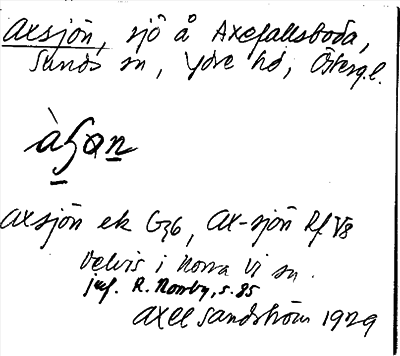 Axsjön, sjö å Axefallsboda,
Sunds sn, Ydre hd, Östergl.
Axsjön ek G36, Ax-sjön Rf V8
Delvis i Norra Vi sn.
jfr. R. Norrby, s. 85
Axel Sandström 1929